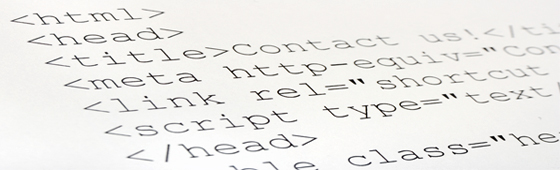 <html>
<head>
<title>Contact us!</ti
<meta http-equiv="Con
<link rel="shortcut
<script type="text/
</head>
ble class="he